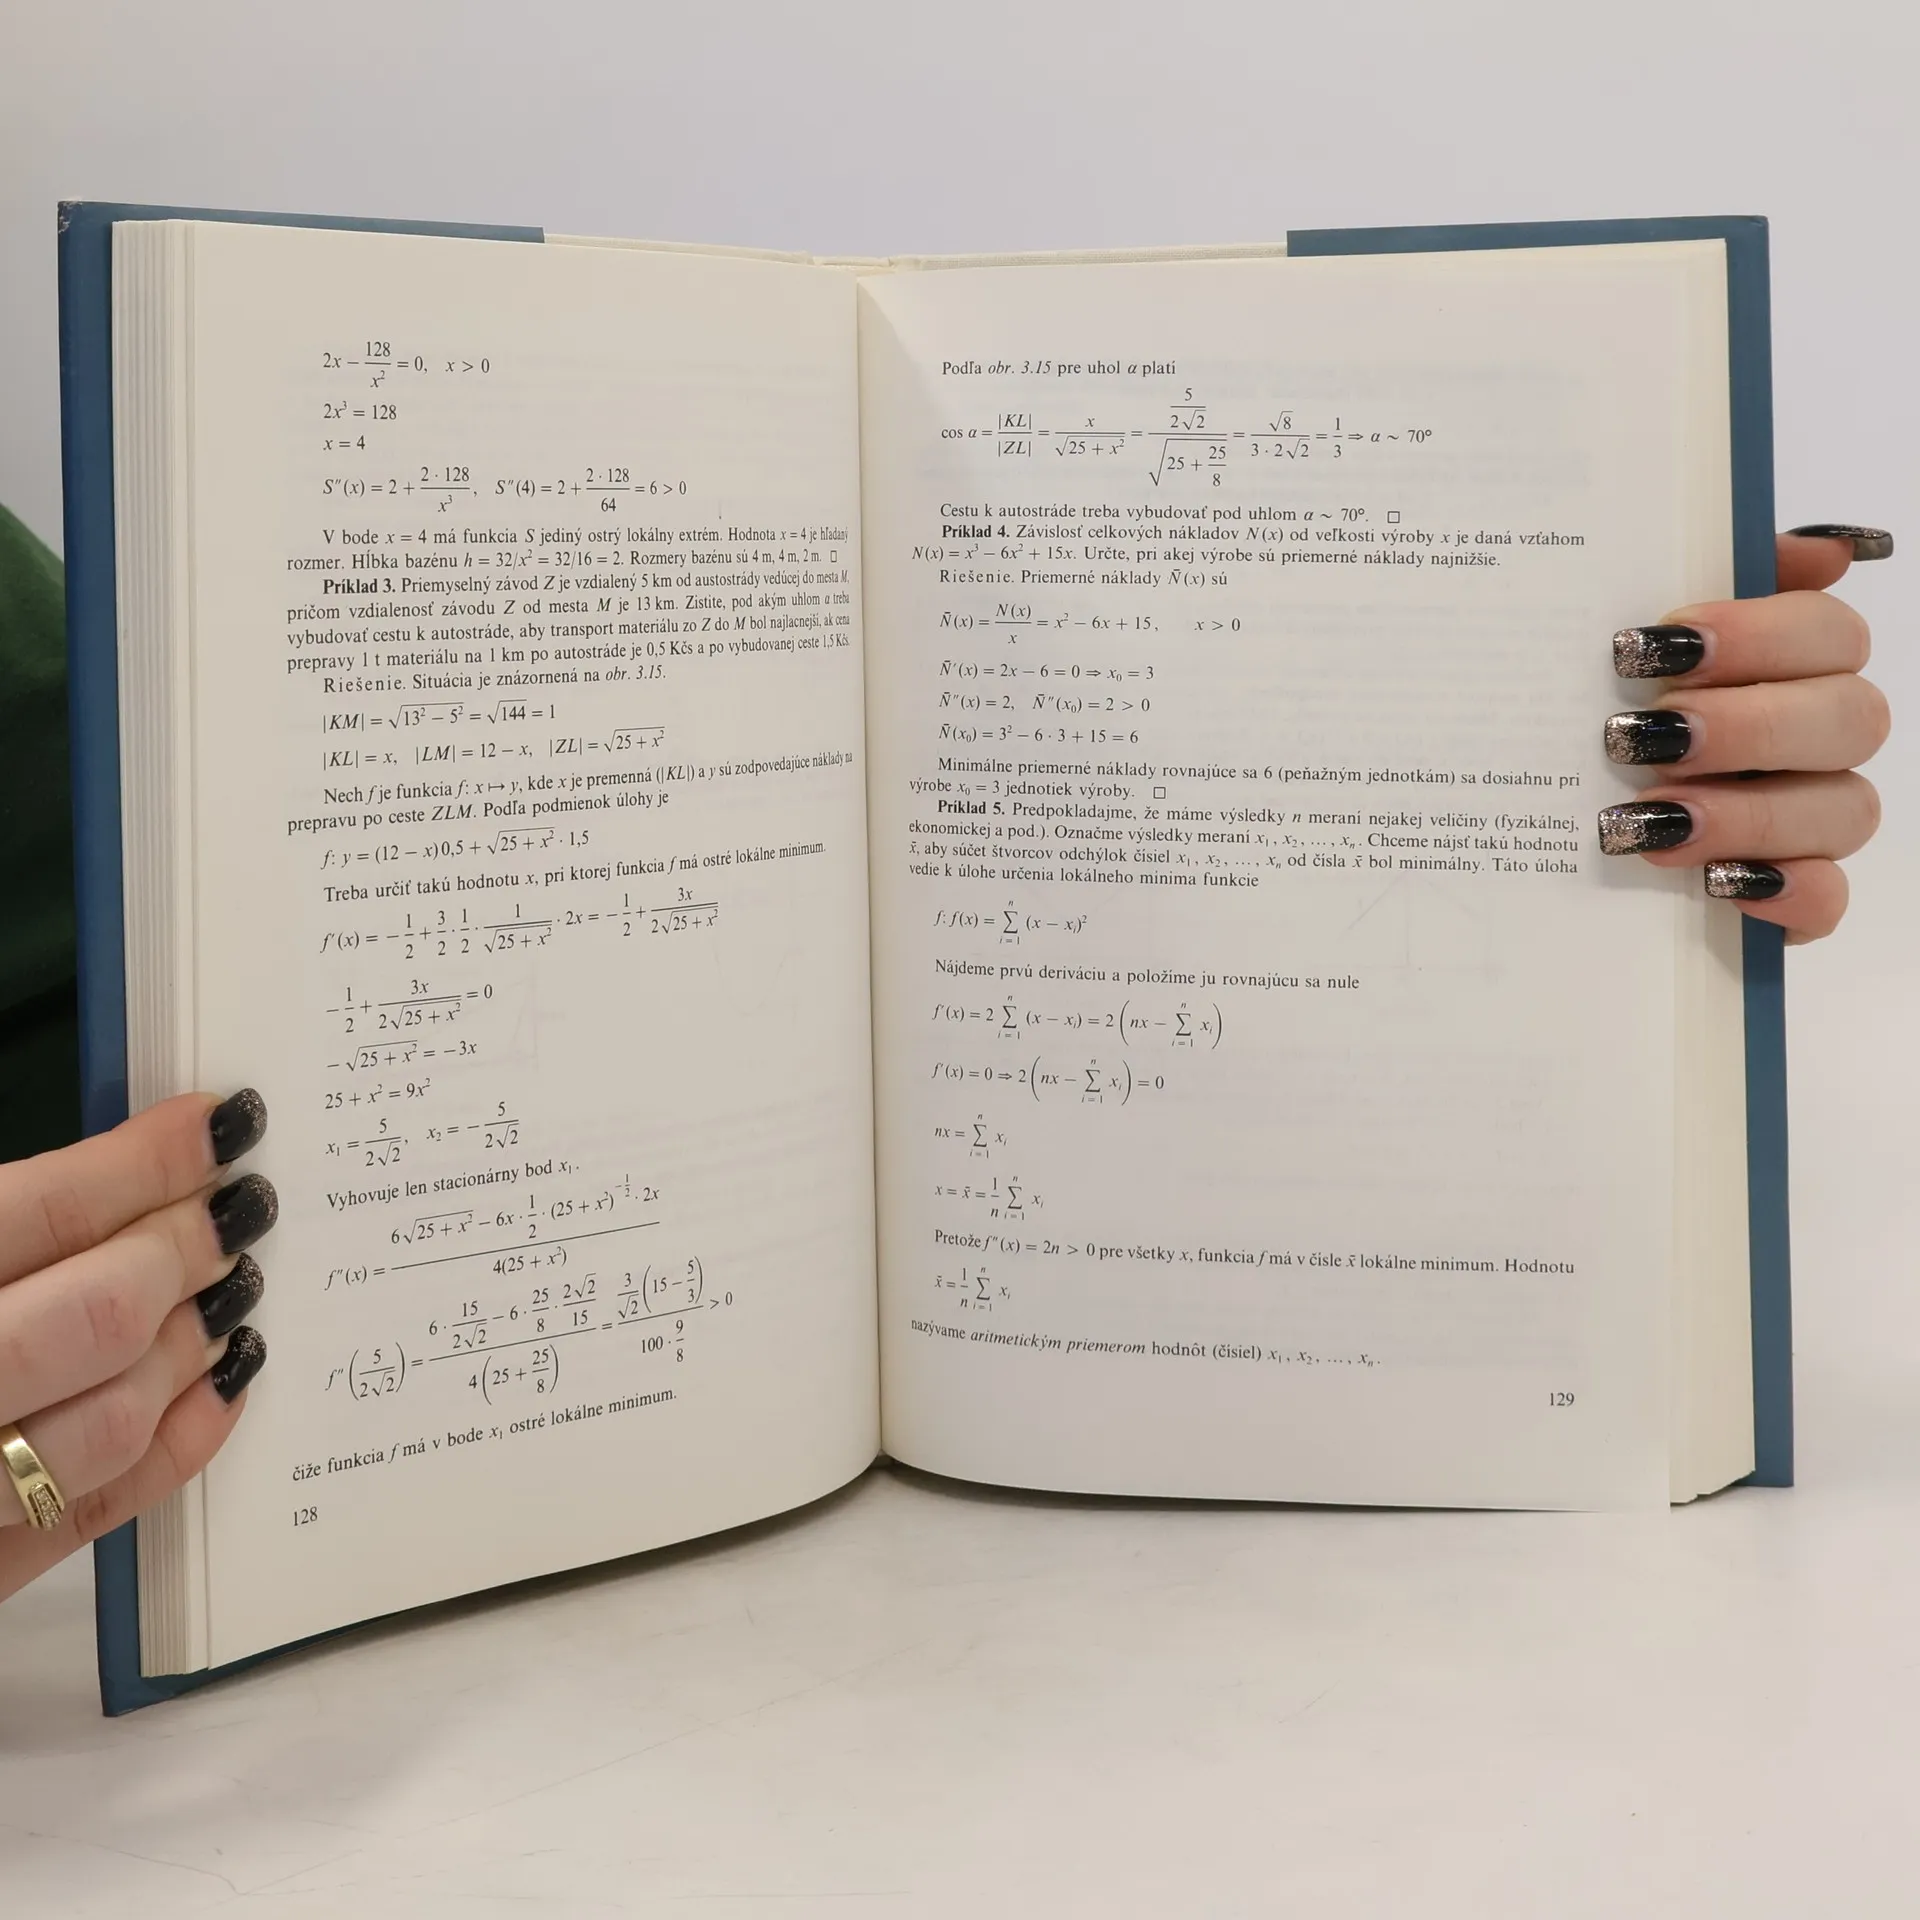 2x − 128/x² = 0, x > 0
2x³ = 128
x = 4
S″(x) = 2 + 2 · 128/x³, S″(4) = 2 + 2 · 128/64 = 6 > 0
V bode x = 4 má funkcia S jediný ostrý lokálny extrém. Hodnota x = 4 je hľadaný
rozmer. Hĺbka bazénu h = 32/x² = 32/16 = 2. Rozmery bazénu sú 4 m, 4 m, 2 m. □
Príklad 3. Priemyselný závod Z je vzdialený 5 km od austostrády vedúcej do mesta M,
pričom vzdialenosť závodu Z od mesta M je 13 km. Zistite, pod akým uhlom α treba
vybudovať cestu k autostráde, aby transport materiálu zo Z do M bol najlacnejší, ak cena
prepravy 1 t materiálu na 1 km po autostráde je 0,5 Kčs a po vybudovanej ceste 1,5 Kčs.
Riešenie. Situácia je znázornená na obr. 3.15.
|KM| = √(13² − 5²) = √144 = 1
|KL| = x, |LM| = 12 − x, |ZL| = √(25 + x²)
Nech f je funkcia f: x ↦ y, kde x je premenná (|KL|) a y sú zodpovedajúce náklady na
prepravu po ceste ZLM. Podľa podmienok úlohy je
f: y = (12 − x) 0,5 + √(25 + x²) · 1,5
Treba určiť takú hodnotu x, pri ktorej funkcia f má ostré lokálne minimum.
f′(x) = − 1/2 + 3/2 · 1/2 · 1/√(25 + x²) · 2x = − 1/2 + 3x/(2√(25 + x²))
− 1/2 + 3x/(2√(25 + x²)) = 0
− √(25 + x²) = −3x
25 + x² = 9x²
x₁ = 5/(2√2), x₂ = − 5/(2√2)
Vyhovuje len stacionárny bod x₁.
f″(x) = (6√(25 + x²) − 6x · 1/2 · (25 + x²)^(−1/2) · 2x)/(4(25 + x²))
f″(5/(2√2)) = (6 · 15/(2√2) − 6 · 25/8 · 2√2/15)/(4(25 + 25/8)) = (3/√2 (15 − 5/3))/(100 · 9/8) > 0
čiže funkcia f má v bode x₁ ostré lokálne minimum.
128
Podľa obr. 3.15 pre uhol α platí
cos α = |KL|/|ZL| = x/√(25 + x²) = (5/(2√2))/√(25 + 25/8) = √8/(3 · 2√2) = 1/3 ⇒ α ~ 70°
Cestu k autostráde treba vybudovať pod uhlom α ~ 70°. □
Príklad 4. Závislosť celkových nákladov N(x) od veľkosti výroby x je daná vzťahom
N(x) = x³ − 6x² + 15x. Určte, pri akej výrobe sú priemerné náklady najnižšie.
Riešenie. Priemerné náklady N̄(x) sú
N̄(x) = N(x)/x = x² − 6x + 15, x > 0
N̄′(x) = 2x − 6 = 0 ⇒ x₀ = 3
N̄″(x) = 2, N̄″(x₀) = 2 > 0
N̄(x₀) = 3² − 6 · 3 + 15 = 6
Minimálne priemerné náklady rovnajúce sa 6 (peňažným jednotkám) sa dosiahnu pri
výrobe x₀ = 3 jednotiek výroby. □
Príklad 5. Predpokladajme, že máme výsledky n meraní nejakej veličiny (fyzikálnej,
ekonomickej a pod.). Označme výsledky meraní x₁, x₂, ..., xₙ. Chceme nájsť takú hodnotu
x̄, aby súčet štvorcov odchýlok čísiel x₁, x₂, ..., xₙ od čísla x̄ bol minimálny. Táto úloha
vedie k úlohe určenia lokálneho minima funkcie
f: f(x) = Σⁿᵢ₌₁ (x − xᵢ)²
Nájdeme prvú deriváciu a položíme ju rovnajúcu sa nule
f′(x) = 2 Σⁿᵢ₌₁ (x − xᵢ) = 2 (nx − Σⁿᵢ₌₁ xᵢ)
f′(x) = 0 ⇒ 2 (nx − Σⁿᵢ₌₁ xᵢ) = 0
nx = Σⁿᵢ₌₁ xᵢ
x = x̄ = 1/n Σⁿᵢ₌₁ xᵢ
Pretože f″(x) = 2n > 0 pre všetky x, funkcia f má v čísle x̄ lokálne minimum. Hodnotu
x̄ = 1/n Σⁿᵢ₌₁ xᵢ
nazývame aritmetickým priemerom hodnôt (čísiel) x₁, x₂, ..., xₙ.
129